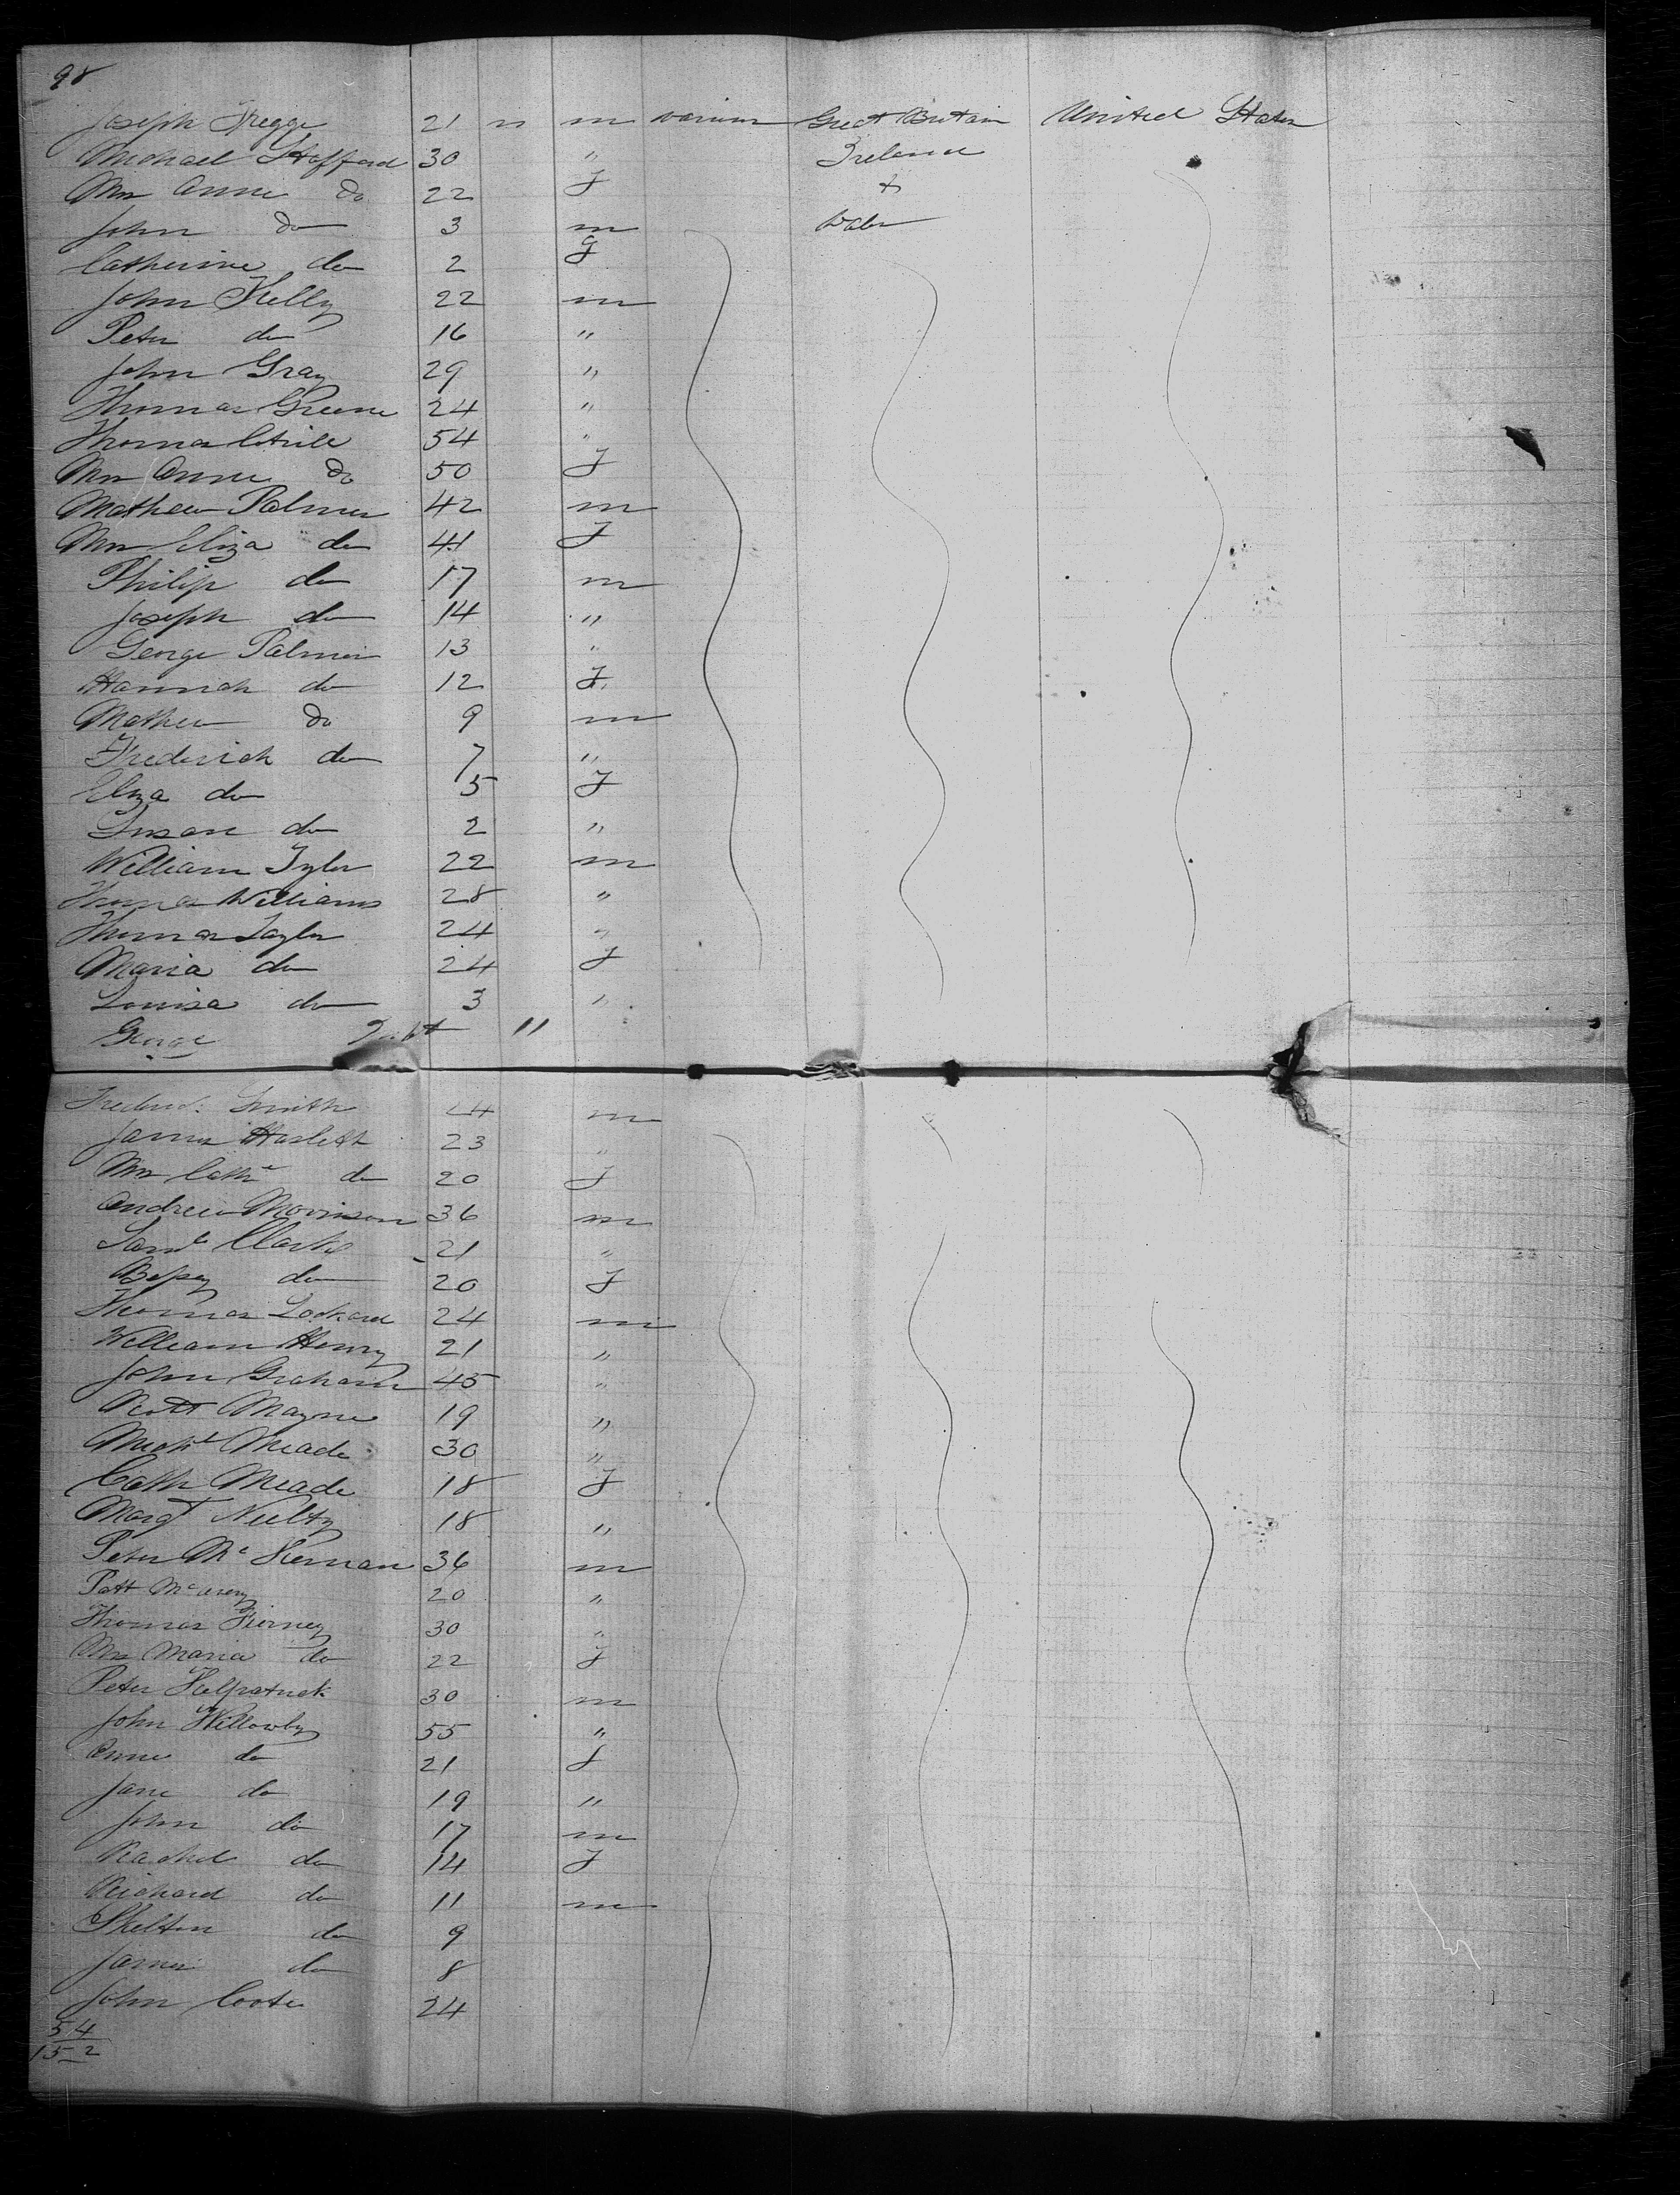 98
Joseph 21 m various Great Britain United States
Michael Stafford 30 " Ireland
Mrs Anne Do 22 F +
John Do 3 m Wales
Catherine do 2 F
John Kelly 22 m
Peter do 16 "
John Gray 29 "
Thomas Greene 24 "
Thomas 54 "
Mrs Anne Do 50 F
Mathew Palmer 42 m
Mrs Eliza do 41 F
Philip do 17 m
Joseph do 14 "
George Palmer 13 "
Hannah do 12 F
Mathew Do 9 m
Frederick do 7 "
Eliza do 5 F
Susan do 2 "
William Tyler 22 m
Thomas Williams 28 "
Thomas Taylor 24 "
Maria do 24 F
Louisa do 3 "
George Infant 11
Frederick Smith 24 m
James Haslett 23 "
Mrs Cathe do 20 F
Andrew Morrison 36 m
Saml Clarke 21 "
Betsey do 20 F
Thomas Lockard 24 m
William Henry 21 "
John Graham 45 "
Mayne 19 "
Michl Meade 30 "
Cath Meade 18 F
Margt Nulty 18 "
Peter McKernan 36 m
Patt 20 "
Thomas Tierney 30 "
Mrs Maria do 22 F
Peter Kilpatrick 30 m
John Willowby 55 "
Anne do 21 F
Jane do 19 "
John do 17 m
Rachel do 14 F
Richard do 11 m
Skelton do 9
James do 8
John Coote 24
54
152